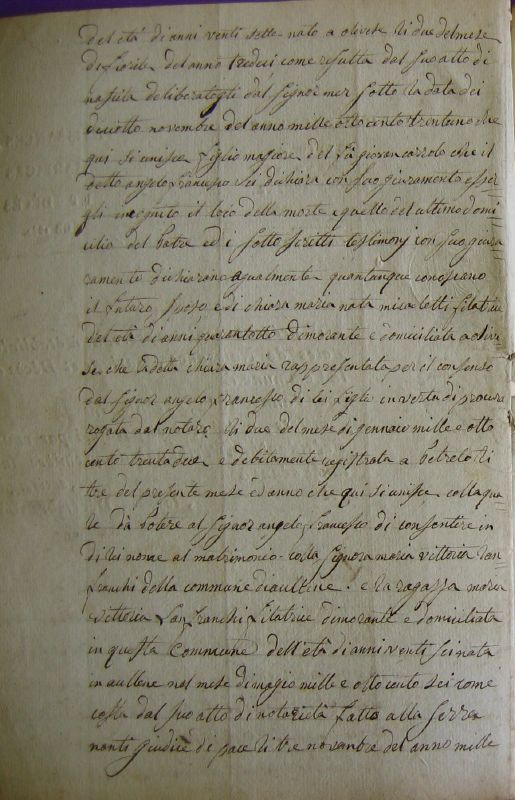 del età di anni venti sette nato a olivese li due del mese
di Fiorile del anno tredeci come resulta dal suo atto di
nascita deliberatogli dal signor mer sotto la data dei
dieciotto novembre del anno mille otto cento trentuno che
qui si unisce figlio magiore del fù giovan carrolo che il
detto angelo francesco sei dichiara con suo giuramento esser
gli incognito il loco della morte e quello del ultimo domi
cilio del Patre ed i sotto scritti testimonj con suo giura
ramente dichiarano agualmente quantunque conoscano
il futuro sposo e di chiara maria nata micaelotti filatrice
del età di anni quarantotto dimorante e domiciliata a olive
se, che la detta chiara maria rappresentata per il consenso
dal signor angelo francesco di lei figlio in vertu di procura
rogata dal notaro li due del mese di gennaio mille e otto
cento trenta due e debitamente registrata a Petreto li
tre del presente mese ed anno che qui si unisce colla qua
le dà Potere al signor angelo francesco di consentire in
di lei nome al matrimonio colla signora maria vittoria Lan
franchi della commune di aullene. e la ragassa maria
vittoria Lanfranchi filatrice dimorante e domiciliata
in questa Commune dell'età di anni venti sei nata
in aullene nel mese di magio mille e otto cento sei come
costa dal suo atto di notorietà fatto alla serra
nanti giudice di pace li tre novembre del anno mille